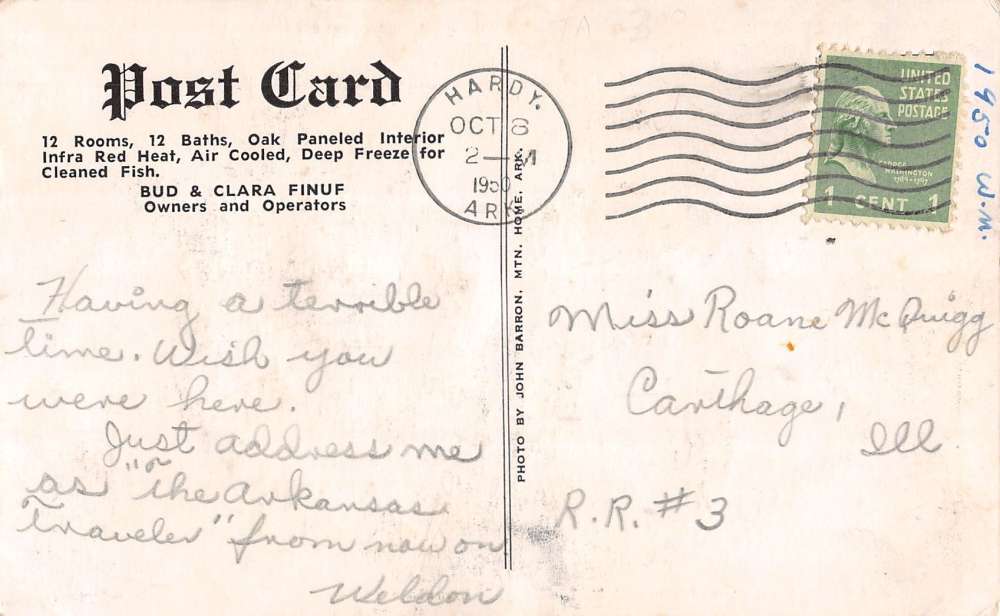 Post Card
12 Rooms, 12 Baths, Oak Paneled Interior
Infra Red Heat, Air Cooled, Deep Freeze for
Cleaned Fish.
BUD & CLARA FINUF
Owners and Operators
Having a terrible
time. Wish you
were here.
Just address me
as "The Arkansas
Traveler" from now on
Weldon
PHOTO BY JOHN BARRON, MTN. HOME, ARK.
HARDY.
OCT 8
2 — M
1950
ARK
UNITED
STATES
POSTAGE
GEORGE
WASHINGTON
1789-1797
1 CENT 1
1950 W.M.
Miss Roane McQuigg
Carthage,
Ill
R.R. #3